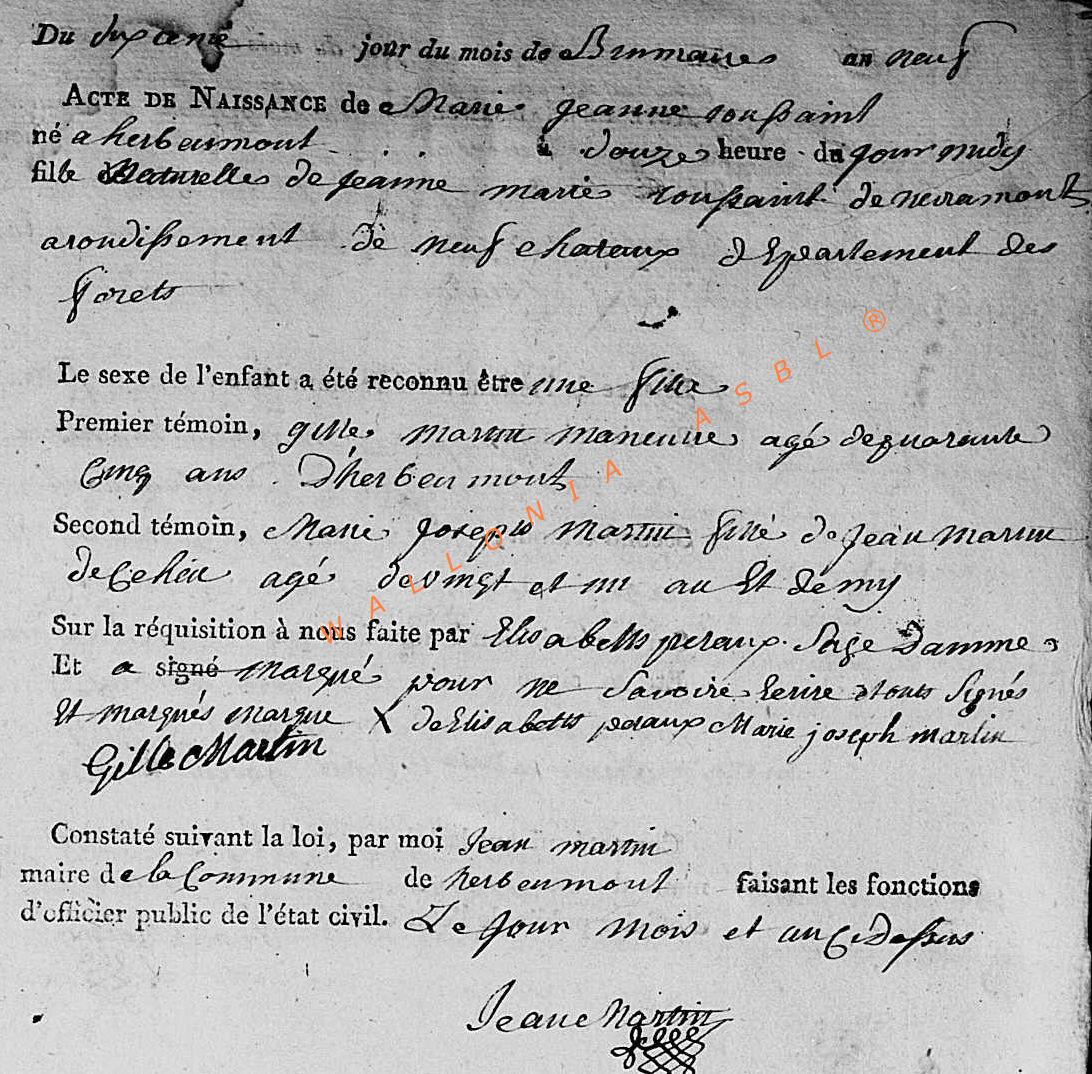 Du jour du mois de Brumaires an neuf
ACTE DE NAISSANCE de Marie jeanne toussaint
né a herbeumont à douze heure du jour midy
fille Naturelle de jeanne marie toussaint de neuramont
arondissement de neuf chateaux departement des
forets
Le sexe de l'enfant a été reconnu être une fille
Premier témoin, gille martin agé de quarante
Cinq ans D'herbeumont
Second témoin, Marie joseph martin fille de jean martin
de agé de vingt et un an Et demy
Sur la réquisition à nous faite par Elisabeth peraux Sage Damme
Et a signé marqué pour ne Savoire Ecrire Signés
Et marqués marque X de Elisabeth peraux Marie joseph martin
Gille Martin
Constaté suivant la loi, par moi Jean martin
maire de la Commune de herbeumont faisant les fonctions
d'officier public de l'état civil. Le jour mois et an Cidessus
Jean Martin
WALLONIA ASBL ®